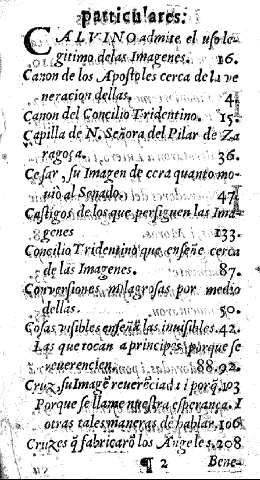 particulares.
CALVINO admite el uso le-
gitimo delas Imagenes. 16.
Canon de los Apostoles cerca de la ve
neracion dellas. 4.
Canon del Concilio Tridentino. 15
Capilla de N. Señora del Pilar de Za
ragosa. 36.
Cesar, su Imagen de cera quanto mo-
uiò al Senado. 47
Castigos de los que persiguen las Ima-
genes 133.
Concilio Tridentino que enseñe cerca
de las Imagenes. 87.
Conversiones milagrosas por medio
dellas. 50.
Cosas visibles enseñã las inuisibles. 42.
Las que tocan a principes porque se
reuerencien. 88.92.
Cruz, su Imagẽ reuerẽciada i porq̃. 103
Porque se llame nuestra esperança. I
otras tales maneras de hablar. 106
Cruzes q̃ fabricarõ los Angeles. 208
¶ 2 Bene-